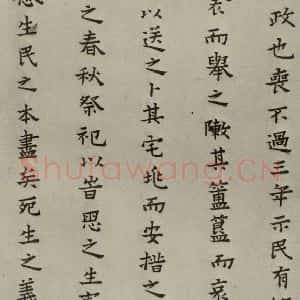 政也喪不過三年示民有
衣而舉之陳其簠簋而哀
以送之卜其宅兆而安措之
之春秋祭祀以旹思之生事
生民之本盡矣死生之義
Shufawang.CN